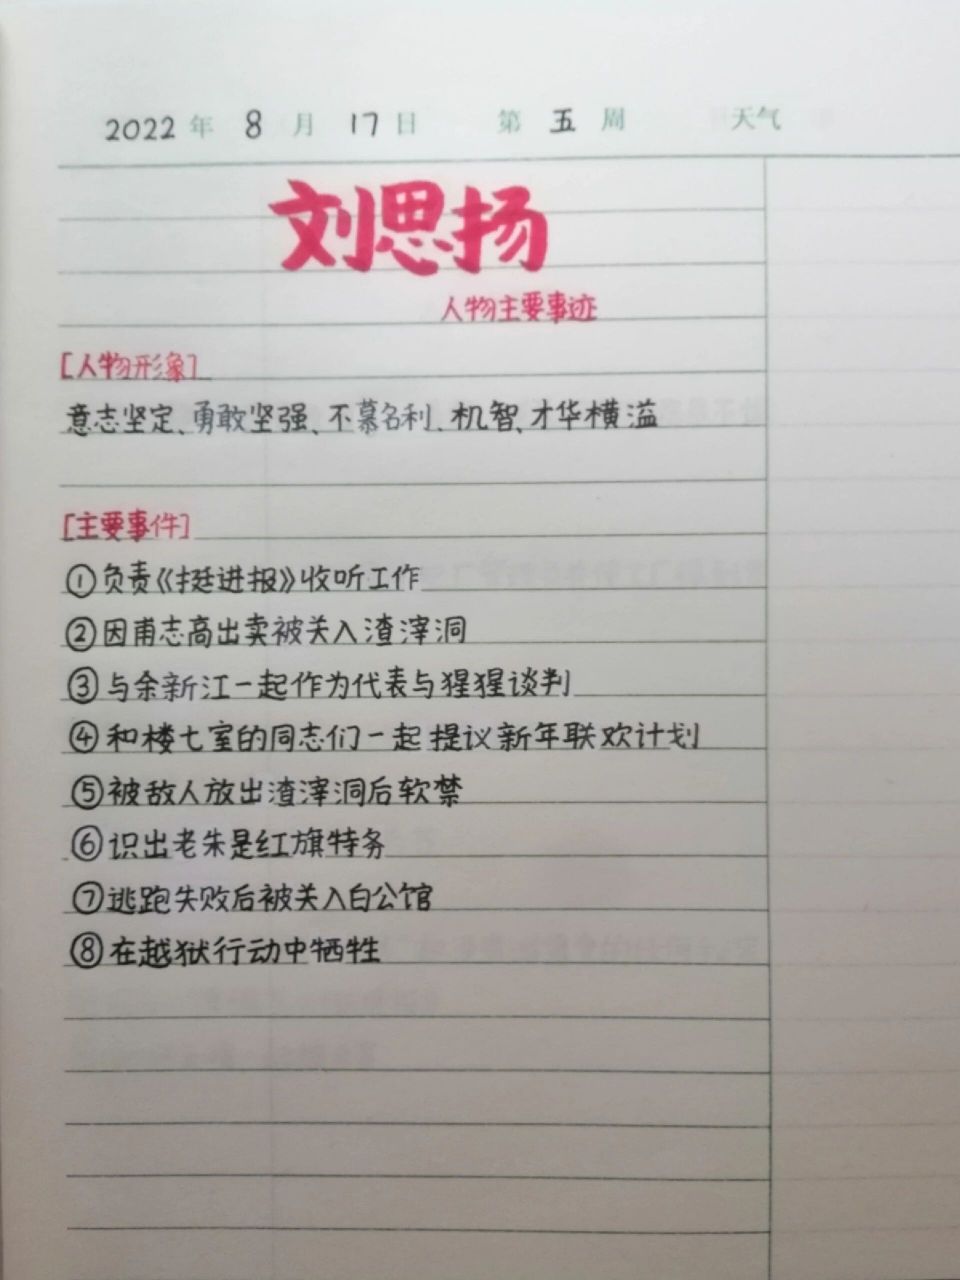 2022年 8月 17日 第五周 天气
刘思扬
人物主要事迹
[人物形象]
意志坚定、勇敢坚强、不慕名利、机智、才华横溢
[主要事件]
①负责《挺进报》收听工作
②因甫志高出卖被关入渣滓洞
③与余新江一起作为代表与猩猩谈判
④和楼七室的同志们一起提议新年联欢计划
⑤被敌人放出渣滓洞后软禁
⑥识出老朱是红旗特务
⑦逃跑失败后被关入白公馆
⑧在越狱行动中牺牲